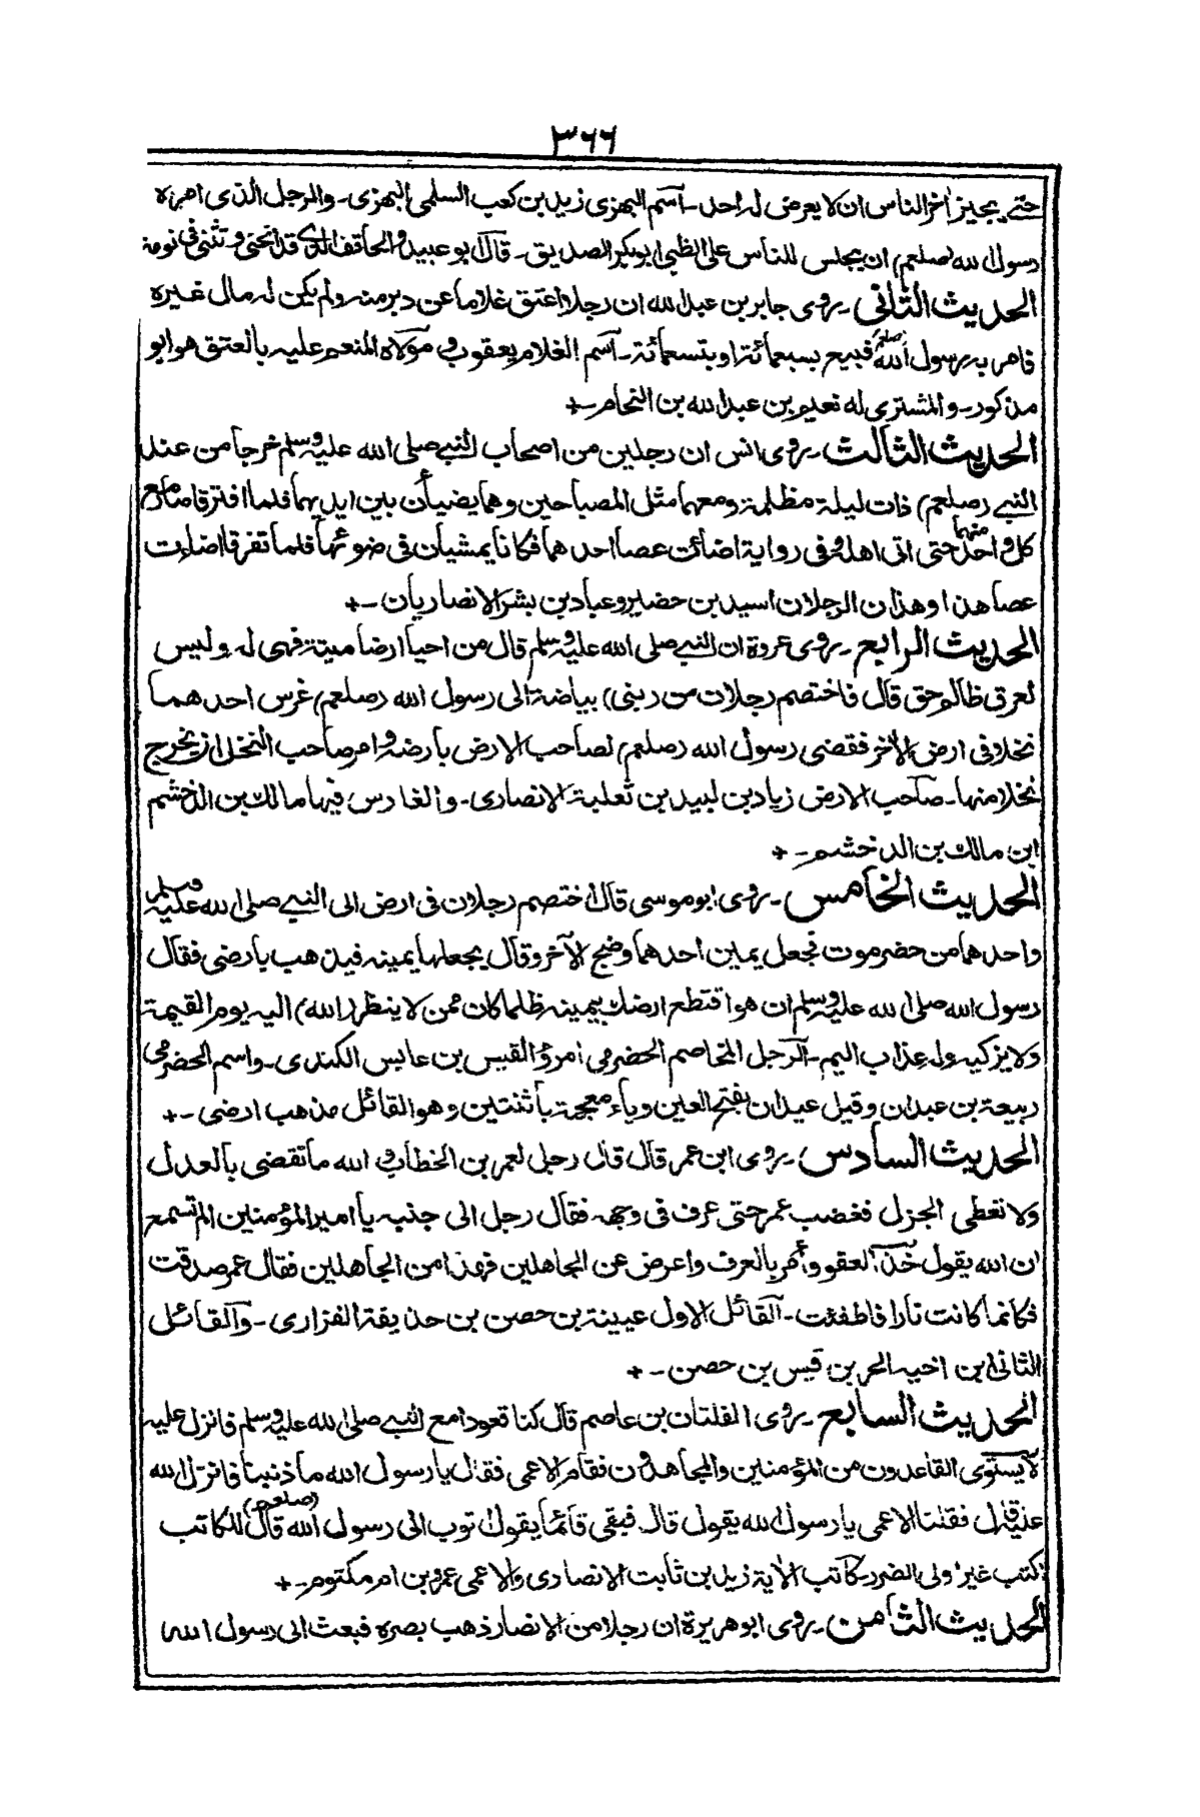 ٣٦٦
حتى يجيز اخر الناس ان لا يعرض له احد ـ اسم البهزى زيد بن كعب السلمى البهزى ـ والرجل الذى امره
رسول الله (صلعم) ان يجلس للناس على الظبى ابو بكر الصديق ـ قال ابو عبيد والحاقف الذى قد انحنى وتثنى فى نومه
الحديث الثانى ـ روى جابر بن عبد الله ان رجلا اعتق غلاما عن دبر منه ولم يكن له مال غيره
فامر به رسول الله صلعم فبيع بسبعمائة او بتسعمائة ـ اسم الغلام يعقوب ومولاه المنعم عليه بالعتق هو ابو
مذكور ـ والمشترى له نعيم بن عبد الله بن النحام ـ+
الحديث الثالث ـ روى انس ان رجلين من اصحاب النبى صلى الله عليه وسلم خرجا من عند
النبى (صلعم) ذات ليلة مظلمة ومعهما مثل المصباحين وهما يضيأن بين ايديهما فلما افترقا صار مع
كل واحد منهما حتى اتى اهله وفى رواية اضائت عصا احدهما فكانا يمشيان فى ضوئها فلما تفرقا اضاءت
عصا هذا وهذان الرجلان اسيد بن حضير وعباد بن بشر الانصاريان ـ+
الحديث الرابع ـ روى عروة ان النبى صلى الله عليه وسلم قال من احيا ارضا ميتة فهى له وليس
لعرق ظالم حق قال فاختصم رجلان من (بنى) بياضة الى رسول الله (صلعم) غرس احدهما
نخلا فى ارض الاخر فقضى رسول الله (صلعم) لصاحب الارض بارضه وامر صاحب النخل ان يخرج
نخلا منها ـ صاحب الارض زياد بن لبيد بن ثعلبة الانصارى ـ والغارس فيها مالك بن الدخشم
ابن مالك بن الدخشم ـ+
الحديث الخامس ـ روى ابو موسى قال اختصم رجلان فى ارض الى النبى صلى الله عليه وسلم
واحدهما من حضرموت فجعل يمين احدهما وضج الآخر وقال يجعلها يمينه فيذهب بارضى فقال
رسول الله صلى الله عليه وسلم ان هو اقتطع ارضك بيمينه ظلما كان ممن لا ينظر (الله) اليه يوم القيمة
ولا يزكيه وله عذاب اليم ـ الرجل المخاصم الحضرمى امرؤ القيس بن عابس الكندى ـ واسم الحضرمى
ربيعة بن عبدان وقيل عيدان بفتح العين وياء معجمة باثنتين وهو القائل مذهب ارضى ـ+
الحديث السادس ـ روى ابن عمر قال قال رجل لعمر بن الخطاب والله ما تقضى بالعدل
ولا تعطى الجزل فغضب عمر حتى عرف فى وجهه فقال رجل الى جنبه يا امير المؤمنين الم تسمع
ان الله يقول خذ العفو وأمر بالعرف واعرض عن الجاهلين فهذا من الجاهلين فقال عمر صدقت
فكانما كانت نارا فاطفئت ـ القائل الاول عيينة بن حصن بن حذيفة الفزارى ـ والقائل
الثانى ابن اخيه الحر بن قيس بن حصن ـ+
الحديث السابع ـ روى الفلتان بن عاصم قال كنا قعودا مع النبى صلى الله عليه وسلم فانزل عليه
لا يستوى القاعدون من المؤمنين والمجاهدون فقام الاعمى فقال يا رسول الله ما ذنبنا فانزل الله
عليه فقلنا الاعمى يا رسول الله يقول قال فبقى قائما يقول توب الى رسول الله (صلعم) قال للكاتب
اكتب غير اولى الضرر ـ كاتب الاية زيد بن ثابت الانصارى والاعمى عمرو بن ام مكتوم ـ+
الحديث الثامن ـ روى ابو هريرة ان رجلا من الانصار ذهب بصره فبعث الى رسول الله